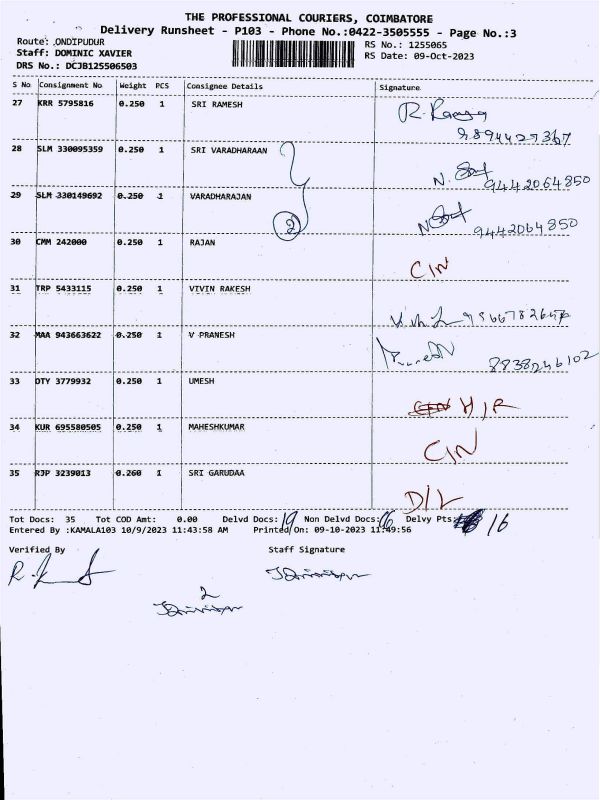 THE PROFESSIONAL COURIERS, COIMBATORE
Delivery Runsheet - P103 - Phone No.:0422-3505555 - Page No.:3
Route: ONDIPUDUR
RS No.: 1255065
Staff: DOMINIC XAVIER
RS Date: 09-Oct-2023
DRS No.: DCJB125506503
S No Consignment No Weight PCS Consignee Details Signature
27 KRR 5795816 0.250 1 SRI RAMESH
9894429367
28 SLM 330095359 0.250 1 SRI VARADHARAAN
9442064850
29 SLM 330149692 0.250 1 VARADHARAJAN
2
9442064850
30 CMM 242000 0.250 1 RAJAN
C/N
31 TRP 5433115 0.250 1 VIVIN RAKESH
32 MAA 943663622 0.250 1 V PRANESH
8838246102
33 OTY 3779932 0.250 1 UMESH
H/R
34 KUR 695580505 0.250 1 MAHESHKUMAR
C/N
35 RJP 3239013 0.260 1 SRI GARUDAA
D/L
Tot Docs: 35 Tot COD Amt: 0.00 Delvd Docs: 19 Non Delvd Docs: 16 Delvy Pts: 16
Entered By :KAMALA103 10/9/2023 11:43:58 AM Printed On: 09-10-2023 11:49:56
Verified By Staff Signature
2